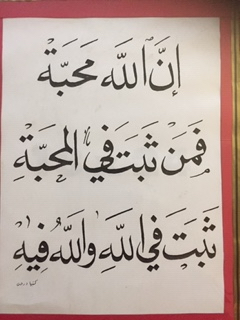 إنَّ اللَّه مَحَبَّة
فَمَنْ ثَبَتَ فِي المَحَبَّةِ
ثَبَتَ فِي اللَّهِ وَاللَّهُ فِيهِ